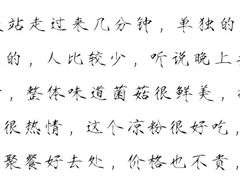 站走过来几分钟，单独的
的，人比较少，听说晚上
，整体味道菌菇很鲜美，
很热情，这个凉粉很好吃，
聚餐好去处，价格也不贵，